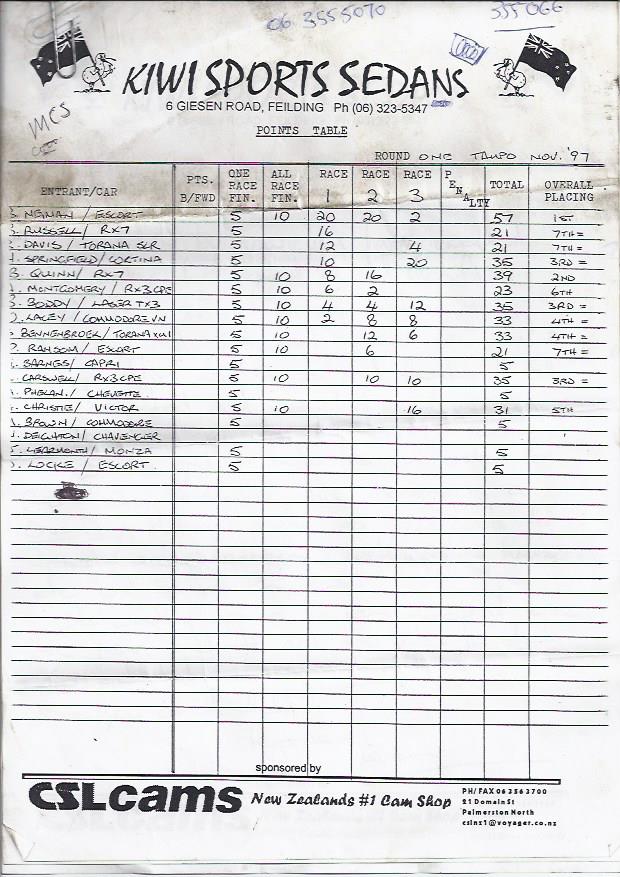 06 3555070
355066
KIWI SPORTS SEDANS
6 GIESEN ROAD, FEILDING Ph (06) 323-5347
MCS
POINTS TABLE
ROUND ONE TAUPO NOV. '97
ENTRANT/CAR PTS. B/FWD ONE RACE FIN. ALL RACE FIN. RACE 1 RACE 2 RACE 3 PENALTY TOTAL OVERALL PLACING
NEIMAN / ESCORT 5 10 20 20 2 57 1ST
RUSSELL / RX7 5 16 21 7TH =
DAVIS / TORANA SLR 5 12 4 21 7TH =
SPRINGFIELD / CORTINA 5 10 20 35 3RD =
QUINN / RX7 5 10 8 16 39 2ND
MONTGOMERY / RX3 CPE 5 10 6 2 23 6TH
BODDY / LASER TX3 5 10 4 4 12 35 3RD =
LACEY / COMMODORE VN 5 10 2 8 8 33 4TH =
BENNENBROEK / TORANA 5 10 12 6 33 4TH =
RANSOM / ESCORT 5 10 6 21 7TH =
BARNES / CAPRI 5 5
CARSWELL / RX3 CPE 5 10 10 10 35 3RD =
PHELAN / CHEVETTE 5 5
CHRISTIE / VICTOR 5 10 16 31 5TH
BROWN / COMMODORE 5 5
DEIGHTON / CHAVENGER
LEARMONTH / MONZA 5 5
LOCKE / ESCORT 5 5
sponsored by
CSLcams New Zealands #1 Cam Shop
PH/FAX 06 356 3700
21 Domain St
Palmerston North
cslnz1@voyager.co.nz